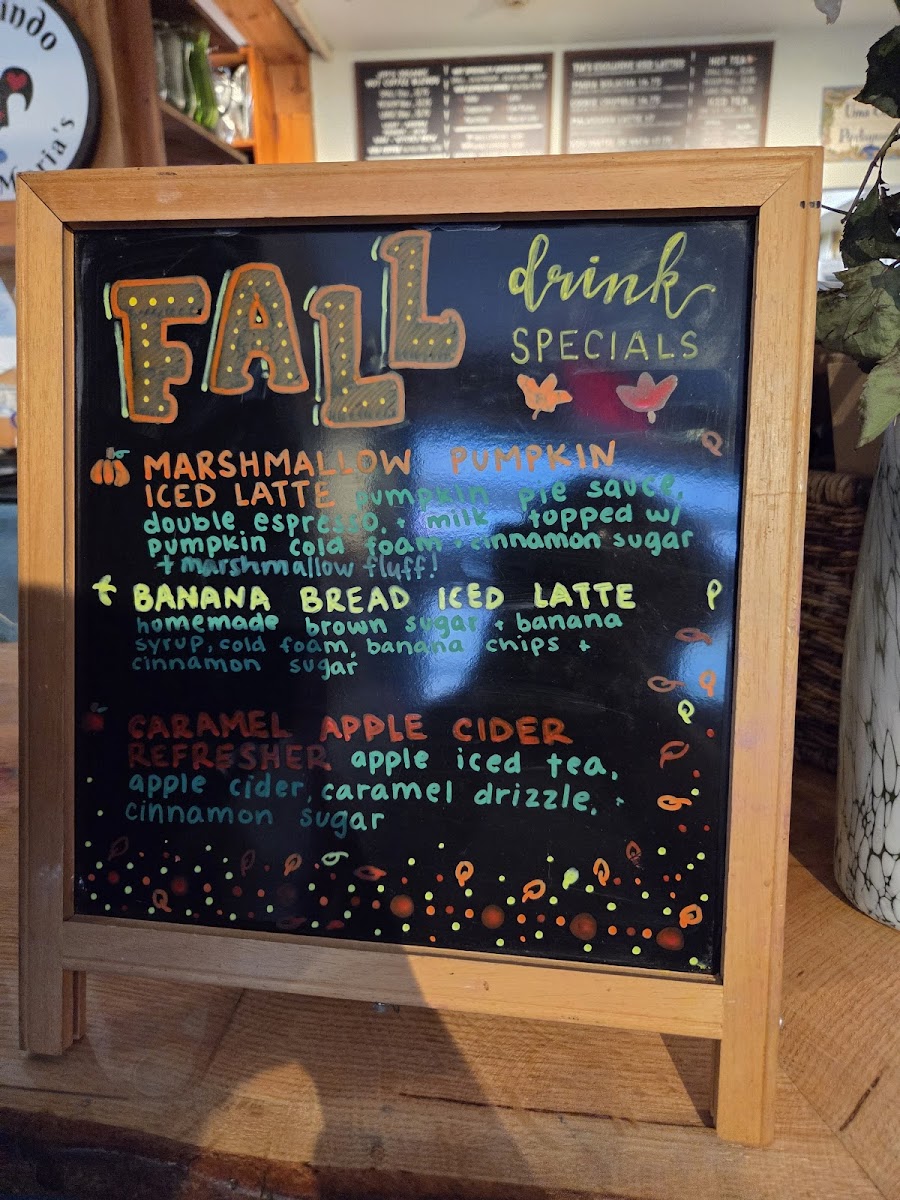 indo
Maria's
HOT TEA
ICED TEA
FALL
drink
SPECIALS
MARSHMALLOW PUMPKIN
ICED LATTE pumpkin pie sauce,
double espresso, + milk topped w/
pumpkin cold foam + cinnamon sugar
+ marshmallow fluff!
BANANA BREAD ICED LATTE
homemade brown sugar + banana
syrup, cold foam, banana chips +
cinnamon sugar
CARAMEL APPLE CIDER
REFRESHER apple iced tea,
apple cider, caramel drizzle, +
cinnamon sugar